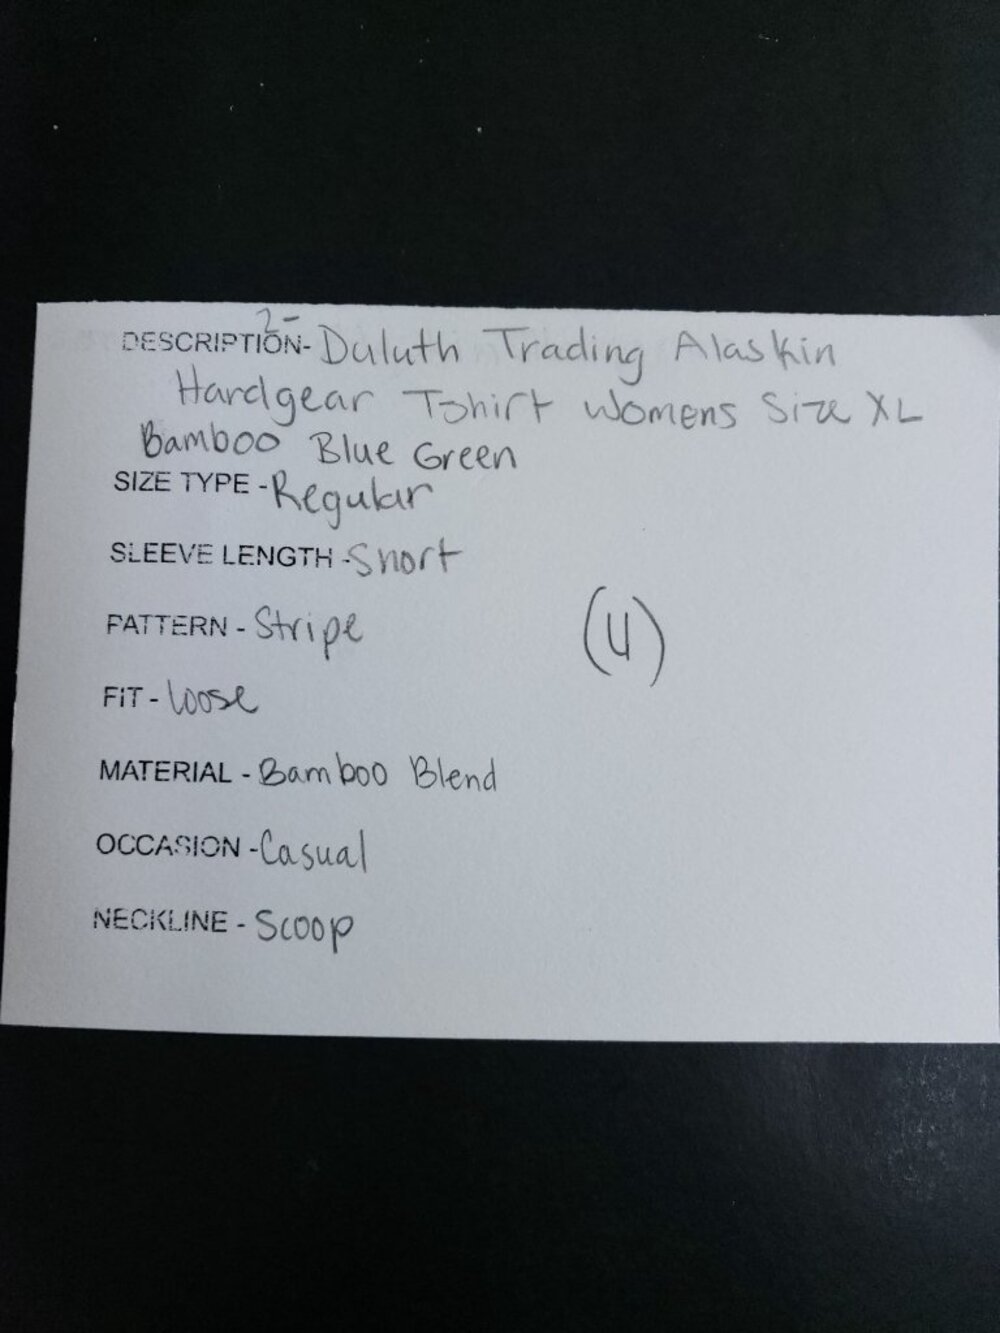 2-
DESCRIPTION- Duluth Trading Alaskin
Hardgear Tshirt Womens Size XL
Bamboo Blue Green
SIZE TYPE - Regular
SLEEVE LENGTH - Short
PATTERN - Stripe
(U)
FIT - Loose
MATERIAL - Bamboo Blend
OCCASION - Casual
NECKLINE - Scoop